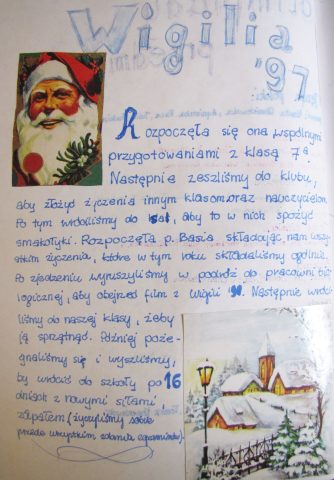 Wigilia
'97
Rozpoczęła się ona wspólnymi
przygotowaniami z klasą 7a.
Następnie zeszliśmy do klubu,
aby złożyć życzenia innym klasom oraz nauczycielom.
Po tym wróciliśmy do sal, aby to w nich spożyć
smakołyki. Rozpoczęła p. Basia składając nam wszy-
stkim życzenia, które w tym roku składaliśmy ogólnie.
Po zjedzeniu wyruszyliśmy w podróż do pracowni bio-
logicznej, aby obejrzeć film z wigilii '91. Następnie wróci-
liśmy do naszej klasy, żeby
ją sprzątnąć. Później poże-
gnaliśmy się i wyszliśmy,
by wrócić do szkoły po 16
dniach z nowymi siłami i
zapałem (życzyliśmy sobie
przede wszystkim zdania egzaminów).